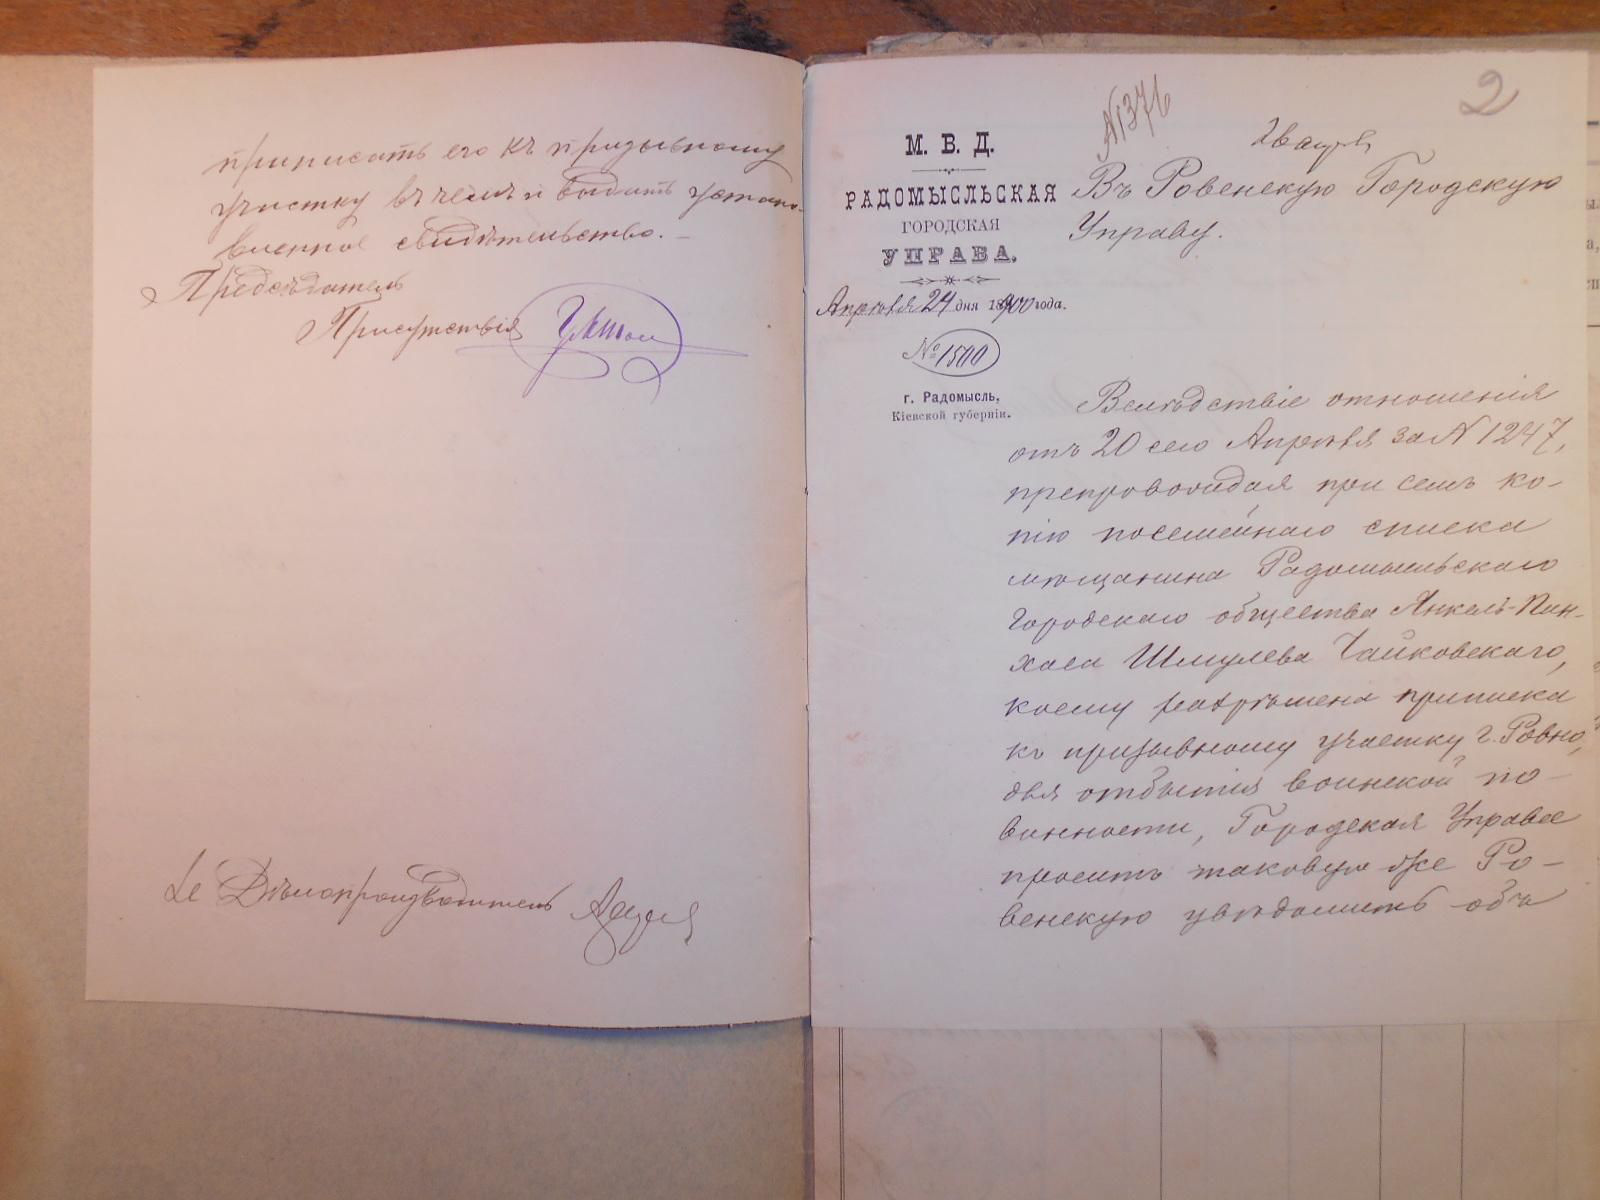 приписать его къ призывному
участку в чемъ и выдать устано-
вленное свидѣтельство.
Предсѣдатель
Присутствія
Дѣлопроизводитель
2
№1376
М. В. Д.
РАДОМЫСЛЬСКАЯ
ГОРОДСКАЯ
УПРАВА.
Апрѣля 24 дня 1900 года.
№ 1500
г. Радомысль,
Кіевской губерніи.
Въ Ровенскую Городскую
Управу.
Вслѣдствіе отношенія
отъ 20 сего Апрѣля за № 1247,
препровождая при семъ ко-
пію посемейнаго списка
мѣщанина Радомысльскаго
Городскаго общества Янкель-Пин-
хаса Шмулева Чайковскаго,
коему разрѣшена приписка
къ призывному участку г. Ровно,
для отбытія воинской по-
винности, Городская Управа
проситъ таковую же Ро-
венскую увѣдомить объ